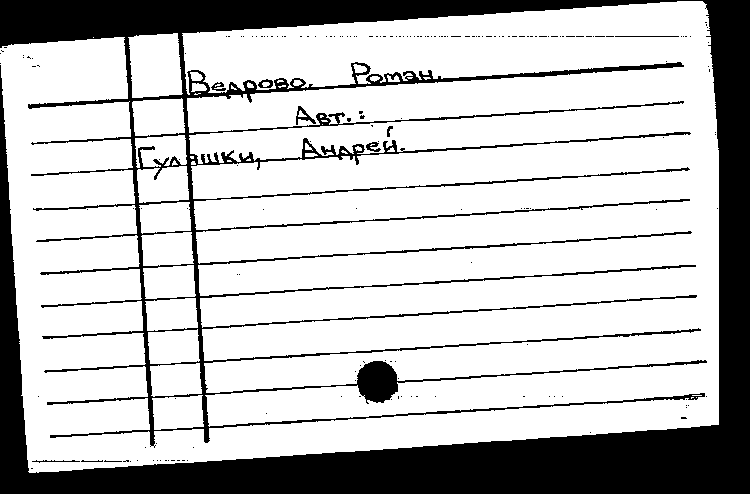 Ведрово. Роман.
Авт.:
Гуляшки, Андрей.